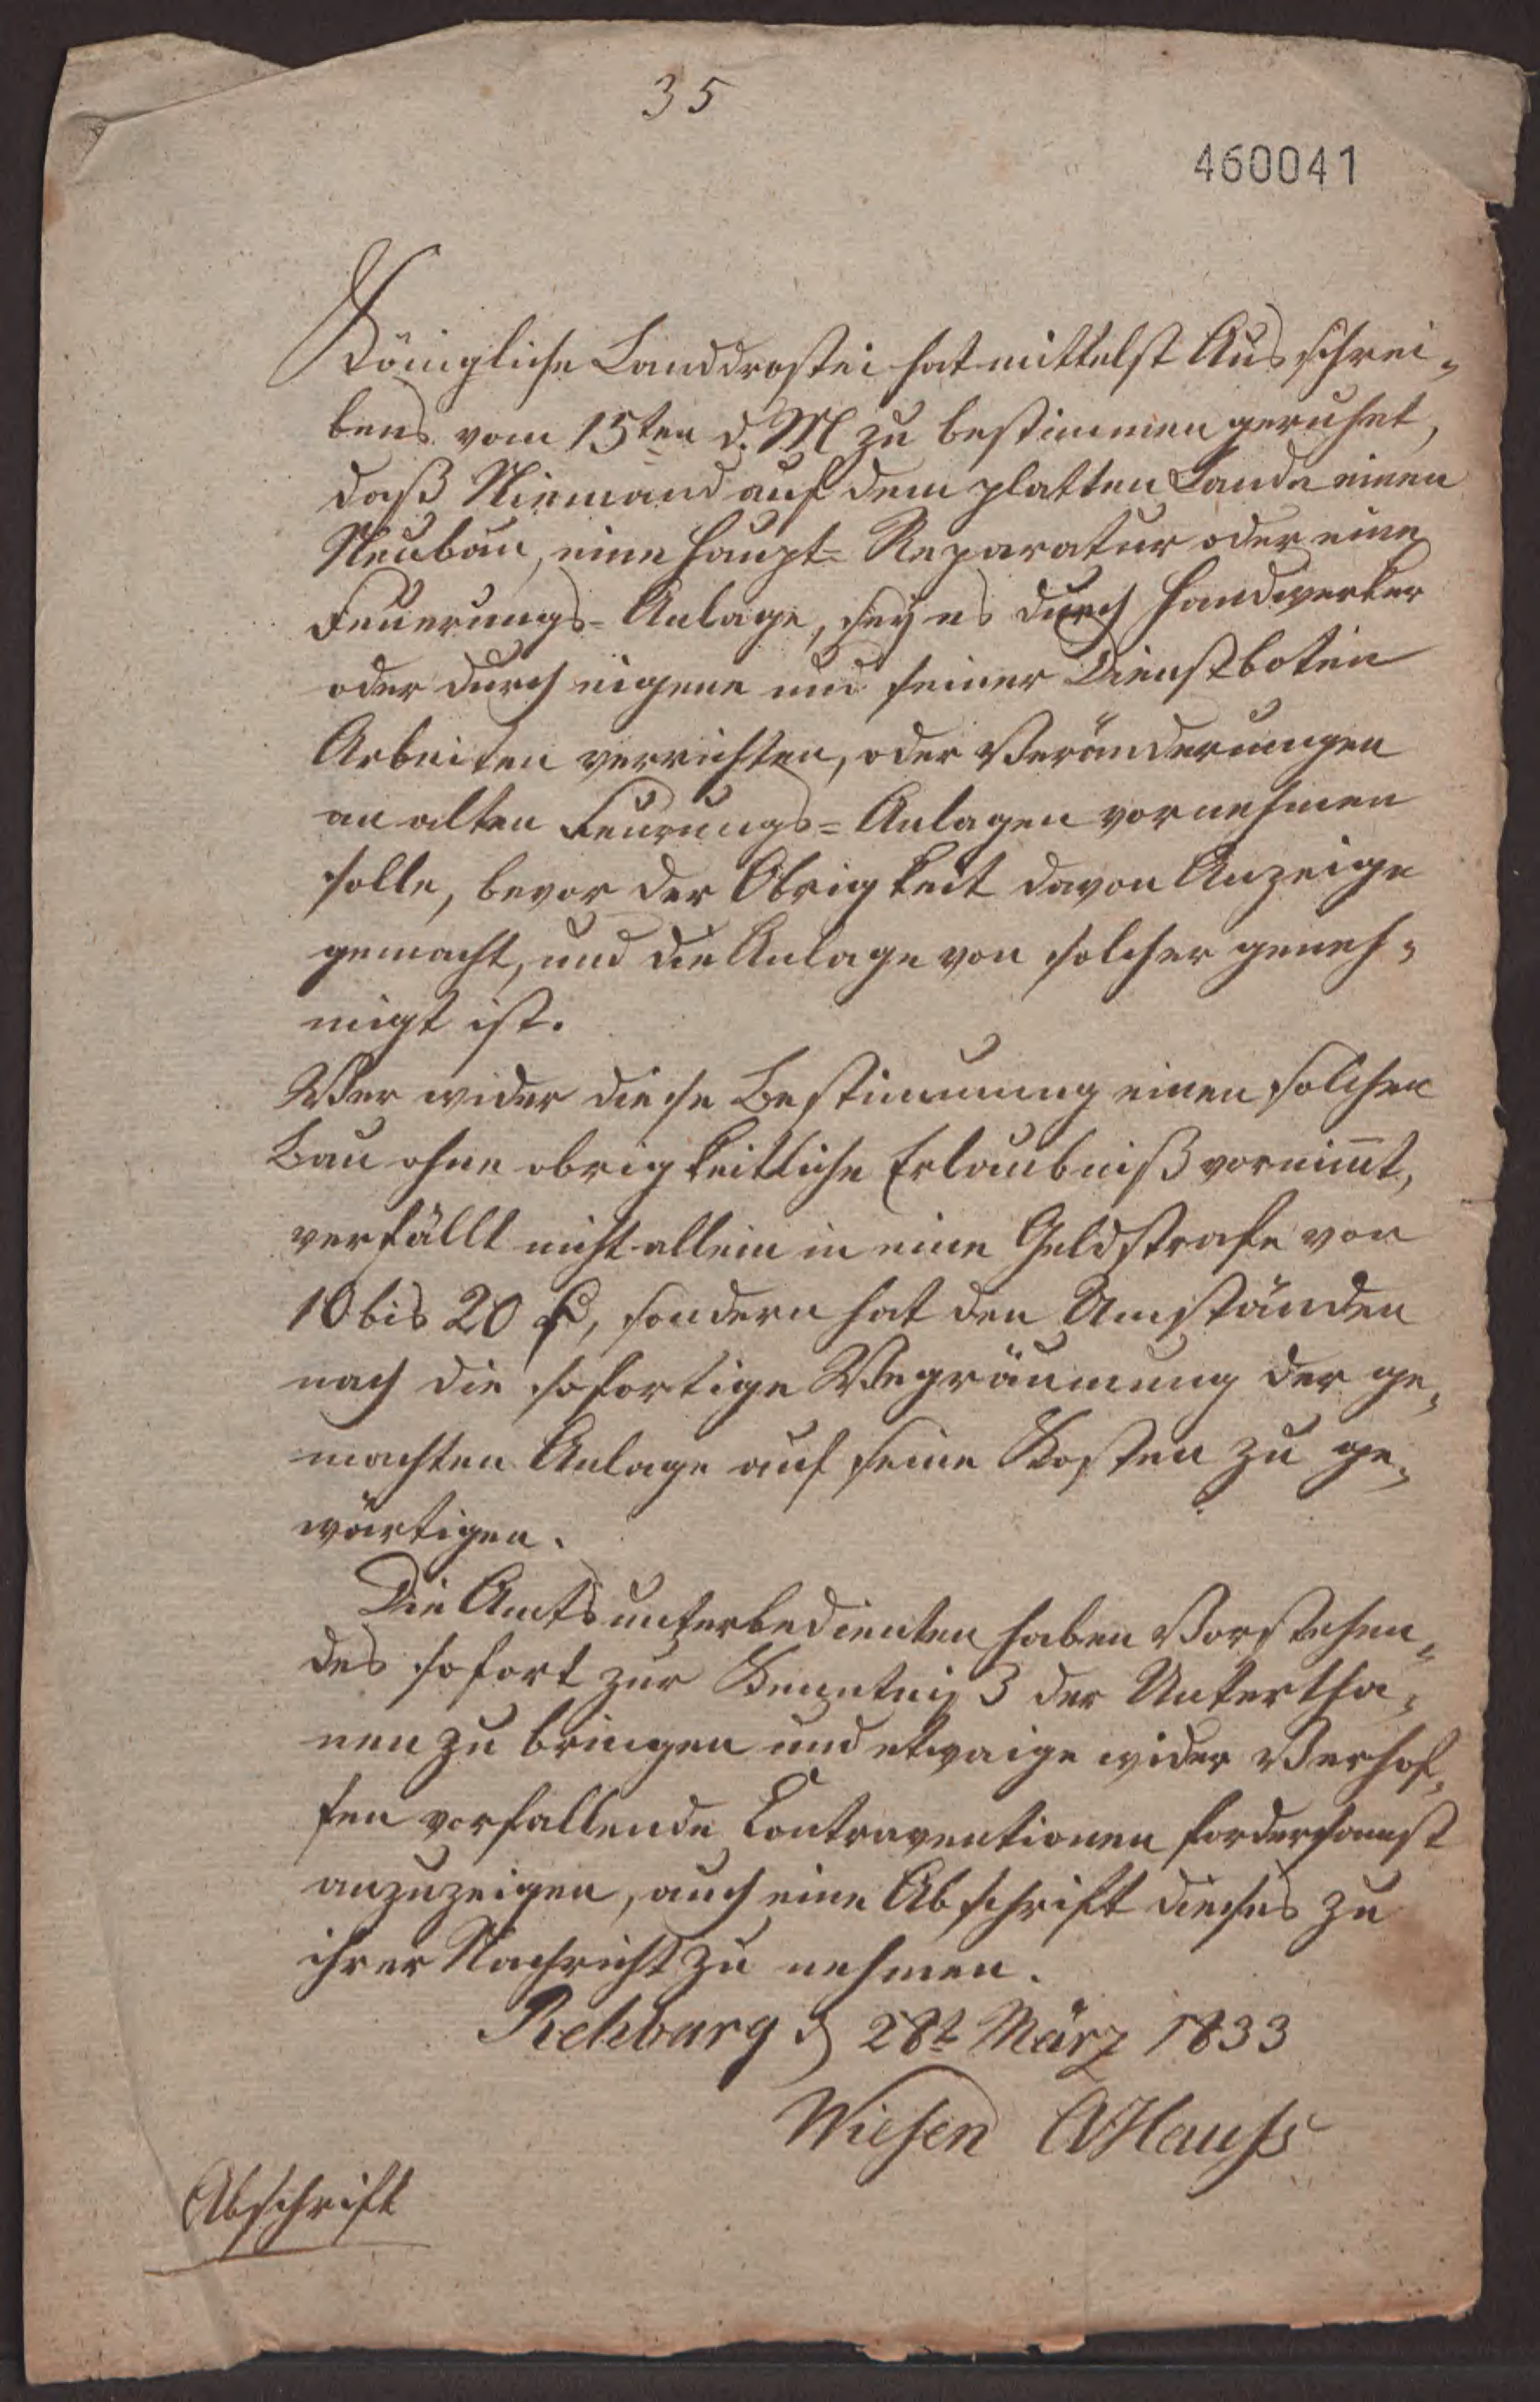 35
460041
Königliche Landdrostei hat mittelst Ausschrei-
bens vom 15ten d. M zu bestimmen geruhet,
daß Niemand auf dem platten Lande einen
Neubau, eine Haupt- Reparatur oder eine
Feuerungs- Anlage, sey es durch Handwerker
oder durch eigene und seiner Dienstboten
Arbeiten verrichten, oder Veränderungen
an alten Feurungs- Anlagen vornehmen
solle, bevor der Obrigkeit davon Anzeige
gemacht, und die Anlage von solcher geneh-
migt ist.
Wer wider diese Bestimmung einen solchen
Bau ohne obrigkeitliche Erlaubniß vornim̅t,
verfällt nicht allein in eine Geldstrafe von
10 bis 20 , sondern hat den Umständen
nach die sofortige Wegräumung der ge-
machten Anlage auf seine Kosten zu ge-
wärtigen.
Die Amtsunterbedienten haben Vorstehen-
des sofort zur Kenntniß der Untertha-
nen zu bringen und etwaige wider Verhof-
fen vorfallende Contraventionen fordersamst
anzuzeigen, auch eine Abschrift dieses zu
ihrer Nachricht zu nehmen.
Rehburg d 28t März 1833
Wiesen Hauss
Abschrift